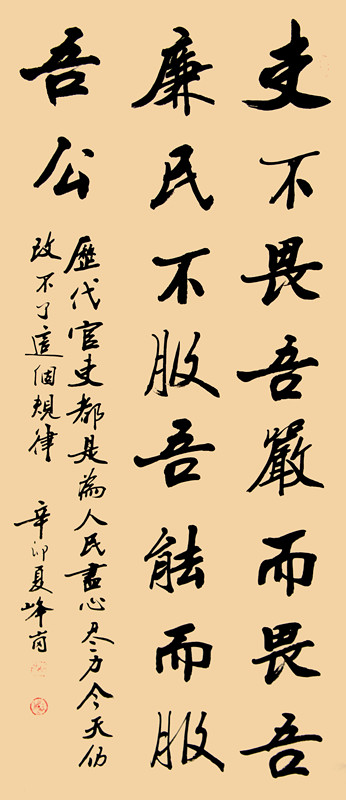 吏不畏吾嚴而畏吾
廉民不服吾能而服
吾公
歷代官吏都是為人民盡心尽力今天仍
改不了這個規律
辛卯夏峰